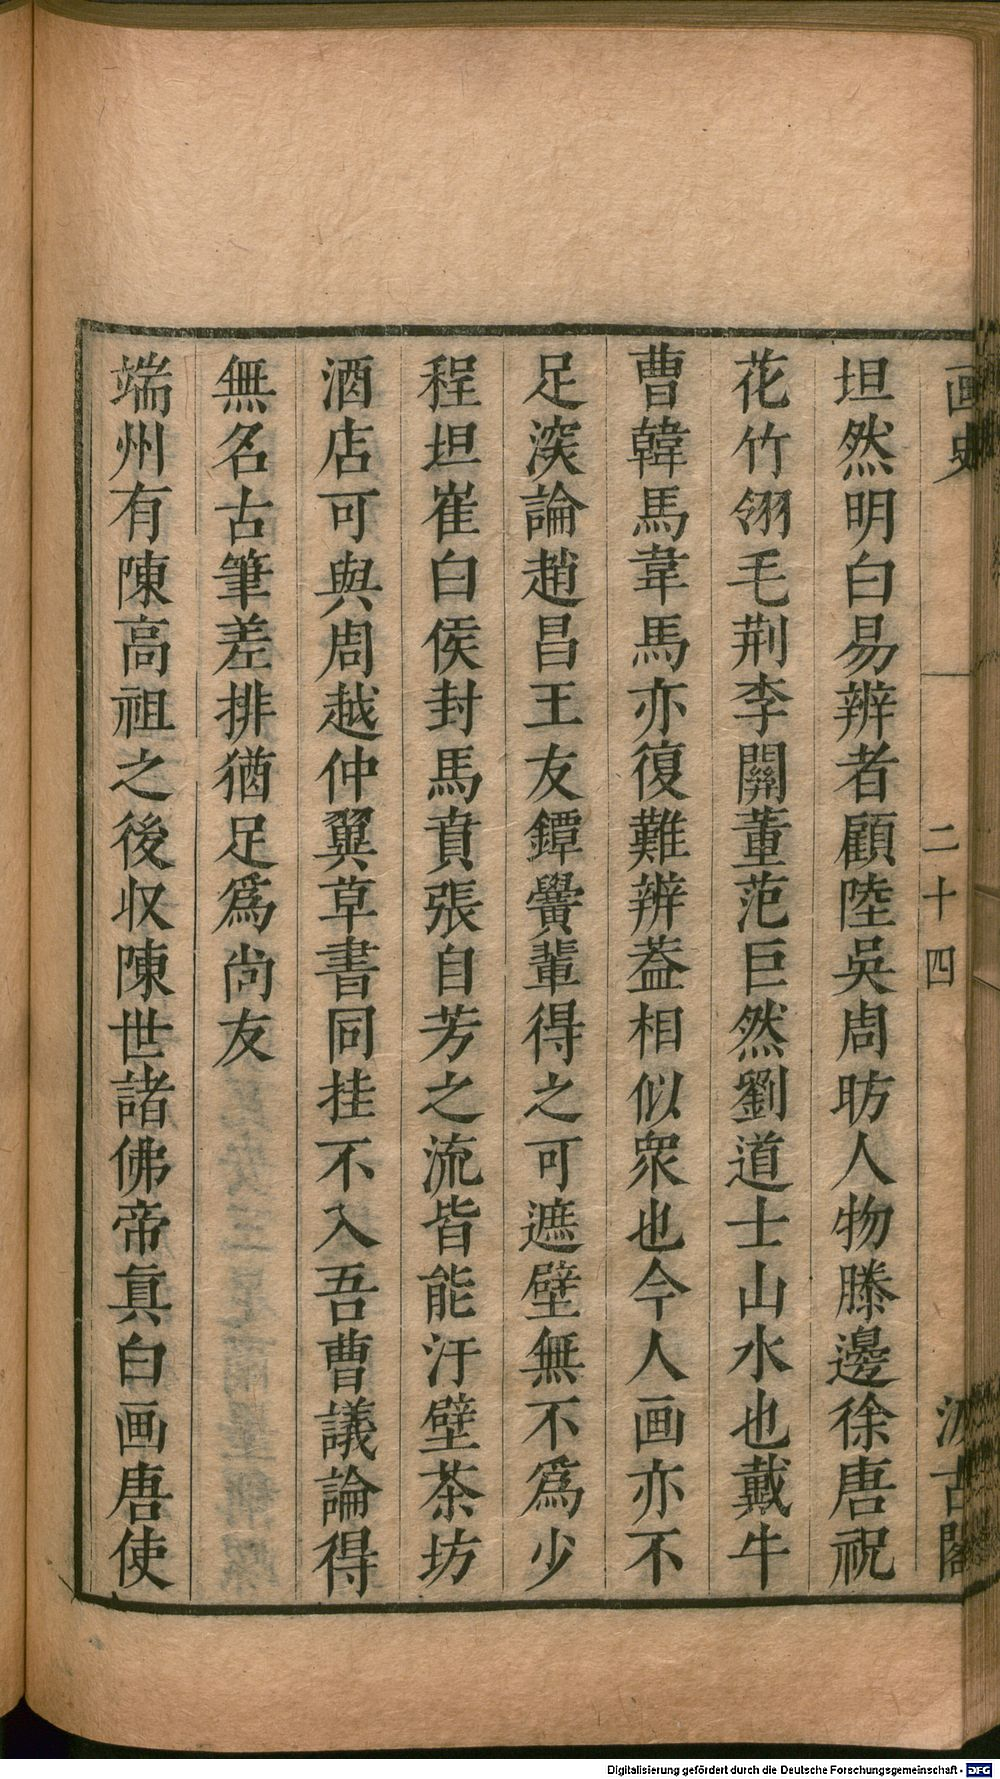 画史
二十四
汲古閣
坦然明白易辨者顧陸吳周昉人物滕邊徐唐祝
花竹翎毛荆李關董范巨然劉道士山水也戴牛
曹韓馬韋馬亦復難辨葢相似衆也今人画亦不
足深論趙昌王友鐔黌輩得之可遮壁無不爲少
程坦崔白侯封馬賁張自芳之流皆能汙壁茶坊
酒店可與周越仲翼草書同挂不入吾曹議論得
無名古筆差排猶足爲尚友
端州有陳高祖之後収陳世諸佛帝真白画唐使
Digitalisierung gefördert durch die Deutsche Forschungsgemeinschaft - DFG